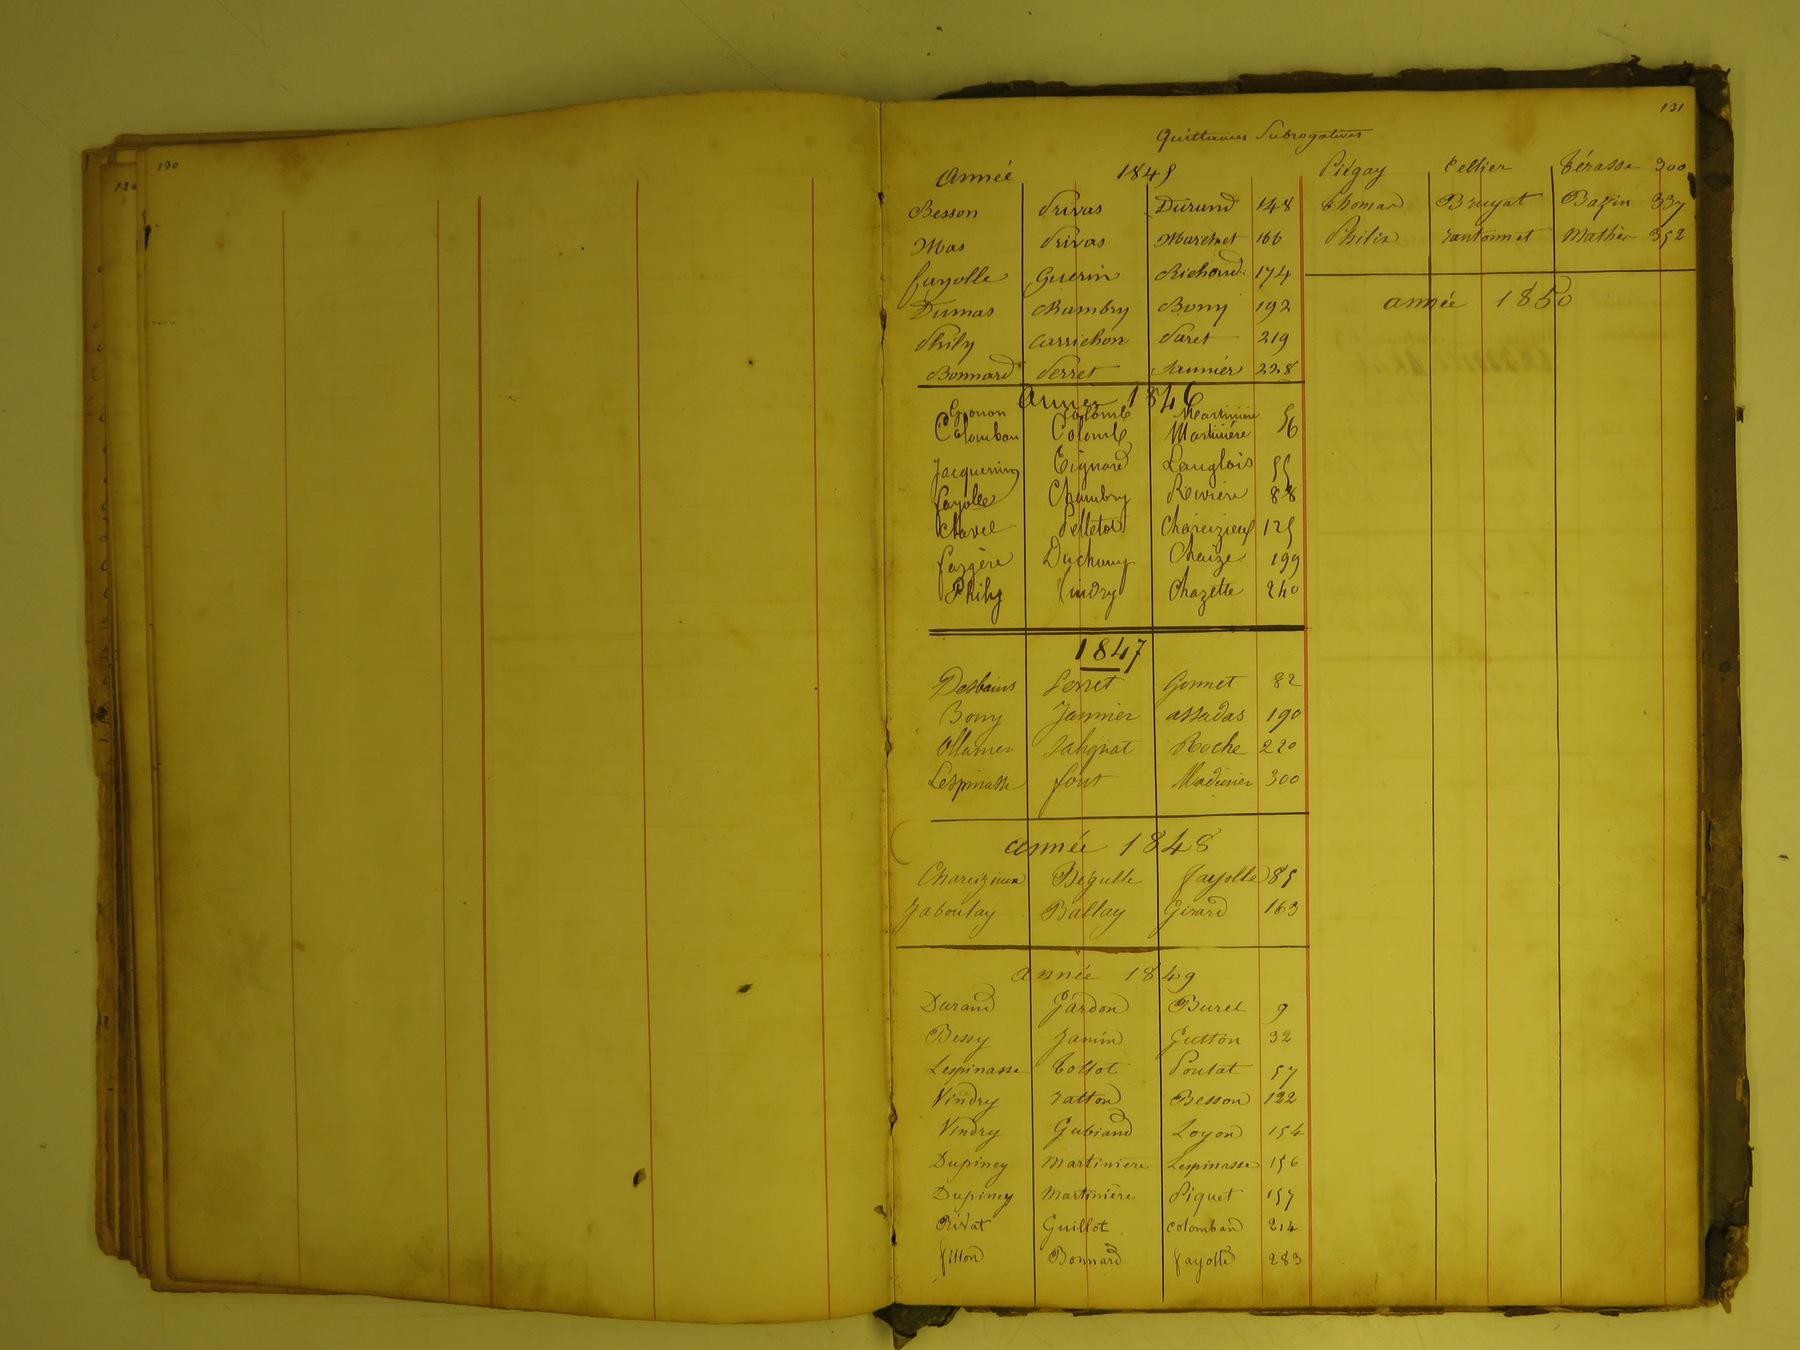 130
131
Quittances Subrogatives
Année 1845
Besson Privas Durand 148
Mas Privas Marchet 166
fayolle Guerin Richard 174
Dumas Chambry Bony 192
Phily Carrichon Paret 219
Bonnard Perret Saunier 228
Année 1846
Gonon Colomb Martinière
Colomban Colomb Martinière 56
Jacquemin Eignard Langlois 55
fayolle Chambry Rivière 88
Chavel Pelletot Chareizieux 125
fargère Duchamp Chaize 199
Phily Vindry Chazette 240
1847
Desbains Perret Gonnet 82
Bony Jannier assadas 190
Ollanier Salignat Roche 220
Lespinasse font Madinier 300
année 1848
Chareizieux Bégulle fayolle 85
Jaboulay Ballay Girard 163
année 1849
Durand Gardon Burel 9
Bessy Jamin Gutton 32
Lespinasse Tollot Poulat 57
Vindry ratton Besson 122
Vindry Gubiand Loyon 154
Dupiney Martinière Lespinasse 156
Dupiney Martinière Piquet 157
Rivat Guillot Colomban 214
fillon Bonnard fayolle 283
Piégay Tellier Térasse 300
Thomas Bruyat Bazin 337
Philix Mathieu 352
année 1850